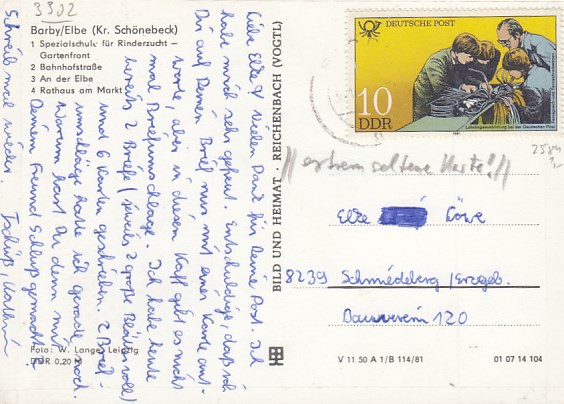 3302
Barby/Elbe (Kr. Schönebeck)
1 Spezialschule für Rinderzucht –
Gartenfront
2 Bahnhofstraße
3 An der Elbe
4 Rathaus am Markt
Foto: W. Lange, Leipzig
DDR 0,20 M
Liebe Elke! Vielen Dank für Deine Post. Ich
habe mich sehr gefreut. Entschuldige, daß ich
Dir auf Deinen Brief nur mit einer Karte ant-
worte, aber in diesem Kaff gibt es nicht
mal Briefumschläge. Ich habe heute
bereits 2 Briefe (jeweils 2 große Blätter voll)
und 6 Karten geschrieben. 2 Brief-
umschläge hatte ich gerade noch.
Warum hast Du denn mit
Deinem Freund Schluß gemacht?
Schreib mal wieder. Tschüß,
BILD UND HEIMAT · REICHENBACH (VOGTL)
DEUTSCHE POST
10
DDR
1981
Lehrlingsausbildung bei der Deutschen Post
2584
//extrem seltene Karte!//
Elke Löwe
8239 Schmiedeberg/Erzgeb.
Bauverein 120
V 11 50 A 1/B 114/81
01 07 14 104